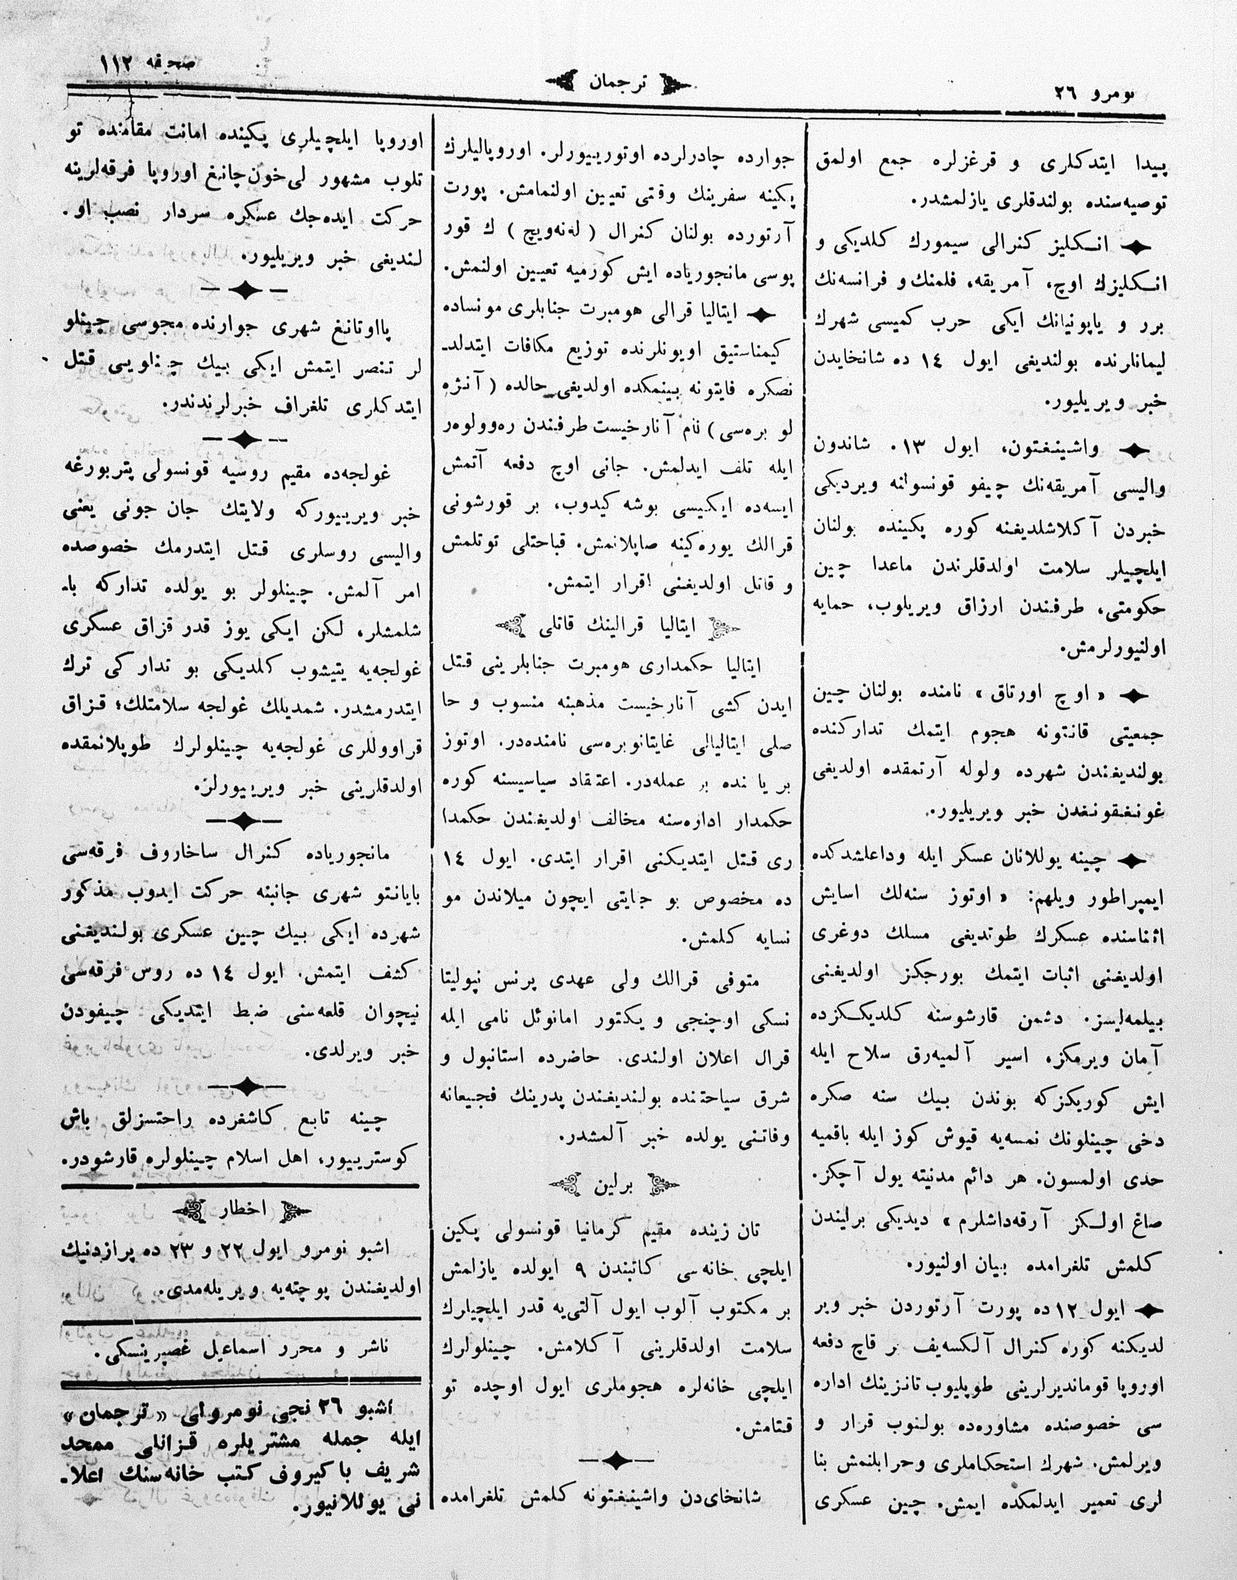 نومرو ٢٦
ترجمان
صحيفه ١١٢
پيدا ايتدكلرى و قرغزلره جمع اولمق
توصيه‌سنده بولندقلرى يازلمشدر.
انـكليز كنرالى سيمورك كلديكى و
انـكليزك اوچ، آمريقه، فلمنك و فرانسه‌نك
برر و ياپونيانك ايكى حرب كميسى شهرك
ليمانلرنده بولنديغى ايول ١٤ ده شانخايدن
خبر ويريليور.
واشينغتون، ايول ١٣. شاندون
واليسى آمريقه‌نك چيفو قونسولنه ويرديكى
خبردن آكلاشلديغنه كوره پكينده بولنان
ايلچيلر سلامت اولدقلرندن ماعدا چين
حكومتى، طرفندن ارزاق ويريلوب، حمايه
اولنيورلرمش.
« اوچ اورتاق » نامنده بولنان چين
جمعيتى قانتونه هجوم ايتمك تداركنده
بولنديغندن شهرده ولوله آرتمقده اولديغى
غونغقونغدن خبر ويريليور.
چينه يوللانان عسكر ايله وداعلشدكده
ايمپراطور ويلهم: « اوتوز سنه‌لك اسايش
اثناسنده عسكرك طوتديغى مسلك دوغرى
اولديغنى اثبات ايتمك بورجكز اولديغنى
بيلمه‌ليسز. دشمن قارشوسنه كلديكـكزده
آمان ويرمكز، اسير آلميه‌رق سلاح ايله
ايش كوريكزكه بوندن بيك سنه صكره
دخى چينلونك نمسه‌يه قيوش كوز ايله باقميه
حدى اولمسون. هر دائم مدنيته يول آچكز.
صاغ اولـكز آرقه‌داشلرم » ديديكى برليندن
كلمش تلغرامده بيان اولنيور.
ايول ١٢ده پورت آرتوردن خبر وير
لديكنه كوره كنرال آلكسه‌يف بر قاچ دفعه
اوروپا قومانديرلرينى طوپليوب تانزينك اداره
سى خصوصنده مشاوره‌ده بولنوب قرار و
ويرلمش. شهرك استحكاملرى وحرابلنمش بنا
لرى تعمير ايدلمكده ايمش. چين عسكرى
جوارده چادرلرده اوتورييورلر. اوروپاليلرك
پكينه سفرينك وقتى تعيين اولنمامش. پورت
آرتورده بولنان كنرال ( له‌نه‌ويچ ) ك قور
پوسى مانجورياده ايش كورميه تعيين اولنمش.
ايتاليا قرالى هومبرت جنابلرى مونساده
كيمناستيق اويونلرنده توزيع مكافات ايتدلد-
نصكره فايتونه بينمكده اولديغى حالده ( آنژه
لو بره‌سى) نام آنارخيست طرفندن ره‌وولوه‌ر
ايله تلف ايدلمش. جانى اوچ دفعه آتمش
ايسه‌ده ايكيسى بوشه كيدوب، بر قورشونى
قرالك يوره‌كينه صاپلانمش. قباحتلى توتلمش
و قاتل اولديغنى اقرار ايتمش.
ايتاليا قرالينك قاتلى
ايتاليا حكمدارى هومبرت جنابلرينى قتل
ايدن كشى آنارخيست مذهبنه منسوب و حا
صلى ايتاليالى غايتانوبره‌سى نامنده‌در. اوتوز
بر ياشنده بر عمله‌در. اعتقاد سياسيسنه كوره
حكمدار اداره‌سنه مخالف اولديغندن حكمدا
رى قتل ايتديكنى اقرار ايتدى. ايول ١٤
ده مخصوص بو جنايتى ايچون ميلاندن مو
نسايه كلمش.
متوفى قرالك ولى عهدى پرنس نپوليتا
نسكى اوچنجى ويكتور امانوئل نامى ايله
قرال اعلان اولندى. حاضرده استانبول و
شرق سياحتنده بولنديغندن پدرينك فجيعانه
وفاتنى يولده خبر آلمشدر.
برلين
تان زينده مقيم كرمانيا قونسولى پكين
ايلچى خانه‌سى كاتبندن ٩ ايولده يازلمش
بر مكتوب آلوب ايول آلتى‌يه قدر ايلچيلرك
سلامت اولدقلرينى آكلامش. چينلولرك
ايلچى خانه‌لره هجوملرى ايول اوچده تو
قتامش.
شانخاى‌دن واشينغتونه كلمش تلغرامده
اوروپا ايلچيلرى پكينده امانت مقامنده تو
تلوب مشهور لى‌خون‌چانغ اوروپا فرقه‌لرينه
حركت ايده‌جك عسكره سردار نصب او-
لنديغى خبر ويريليور.
پااوتانغ شهرى جوارنده مجوسى چينلو
لر تنصر ايتمش ايكى بيك چينلويى قتل
ايتدكلرى تلغراف خبرلرندندر.
غولجه‌ده مقيم روسيه قونسولى پتربورغه
خبر ويرييوركه ولايتك جان جونى يعنى
واليسى روسلرى قتل ايتدرمك خصوصده
امر آلمش. چينلولر بو يولده تداركه با-
شلمشلر، لكن ايكى يوز قدر قزاق عسكرى
غولجه‌يه يتيشوب كلمديكى بو تداركى ترك
ايتدرمشدر. شمديلك غولجه سلامتلك؛ قزاق
قراووللرى غولجه‌يه چينلولرك طوپلانمقده
اولدقلرينى خبر ويرييورلر.
مانجورياده كنرال ساخاروف فرقه‌سى
بايانتو شهرى جانبنه حركت ايدوب مذكور
شهرده ايكى بيك چين عسكرى بولنديغنى
كشف ايتمش. ايول ١٤ ده روس فرقه‌سى
نيچوان قلعه‌سنى ضبط ايتديكى چيفودن
خبر ويرلدى.
چينه تابع كاشغرده راحتسزلق باش
كوسترييور، اهل اسلام چينلولره قارشودر.
اخطار
اشبو نومرو ايول ٢٢ و ٢٣ ده پرازدنيك
اولديغندن پوچته‌يه ويريله‌مدى.
ناشر و محرر اسماعيل غصپرينسكى.
اشبو ٢٦ نجى نومرولى « ترجمان »
ايله جمله مشتريلره قزانلى محمد
شريف باكيروف كتب خانه‌سنك اعلا-
نى يوللانيور.